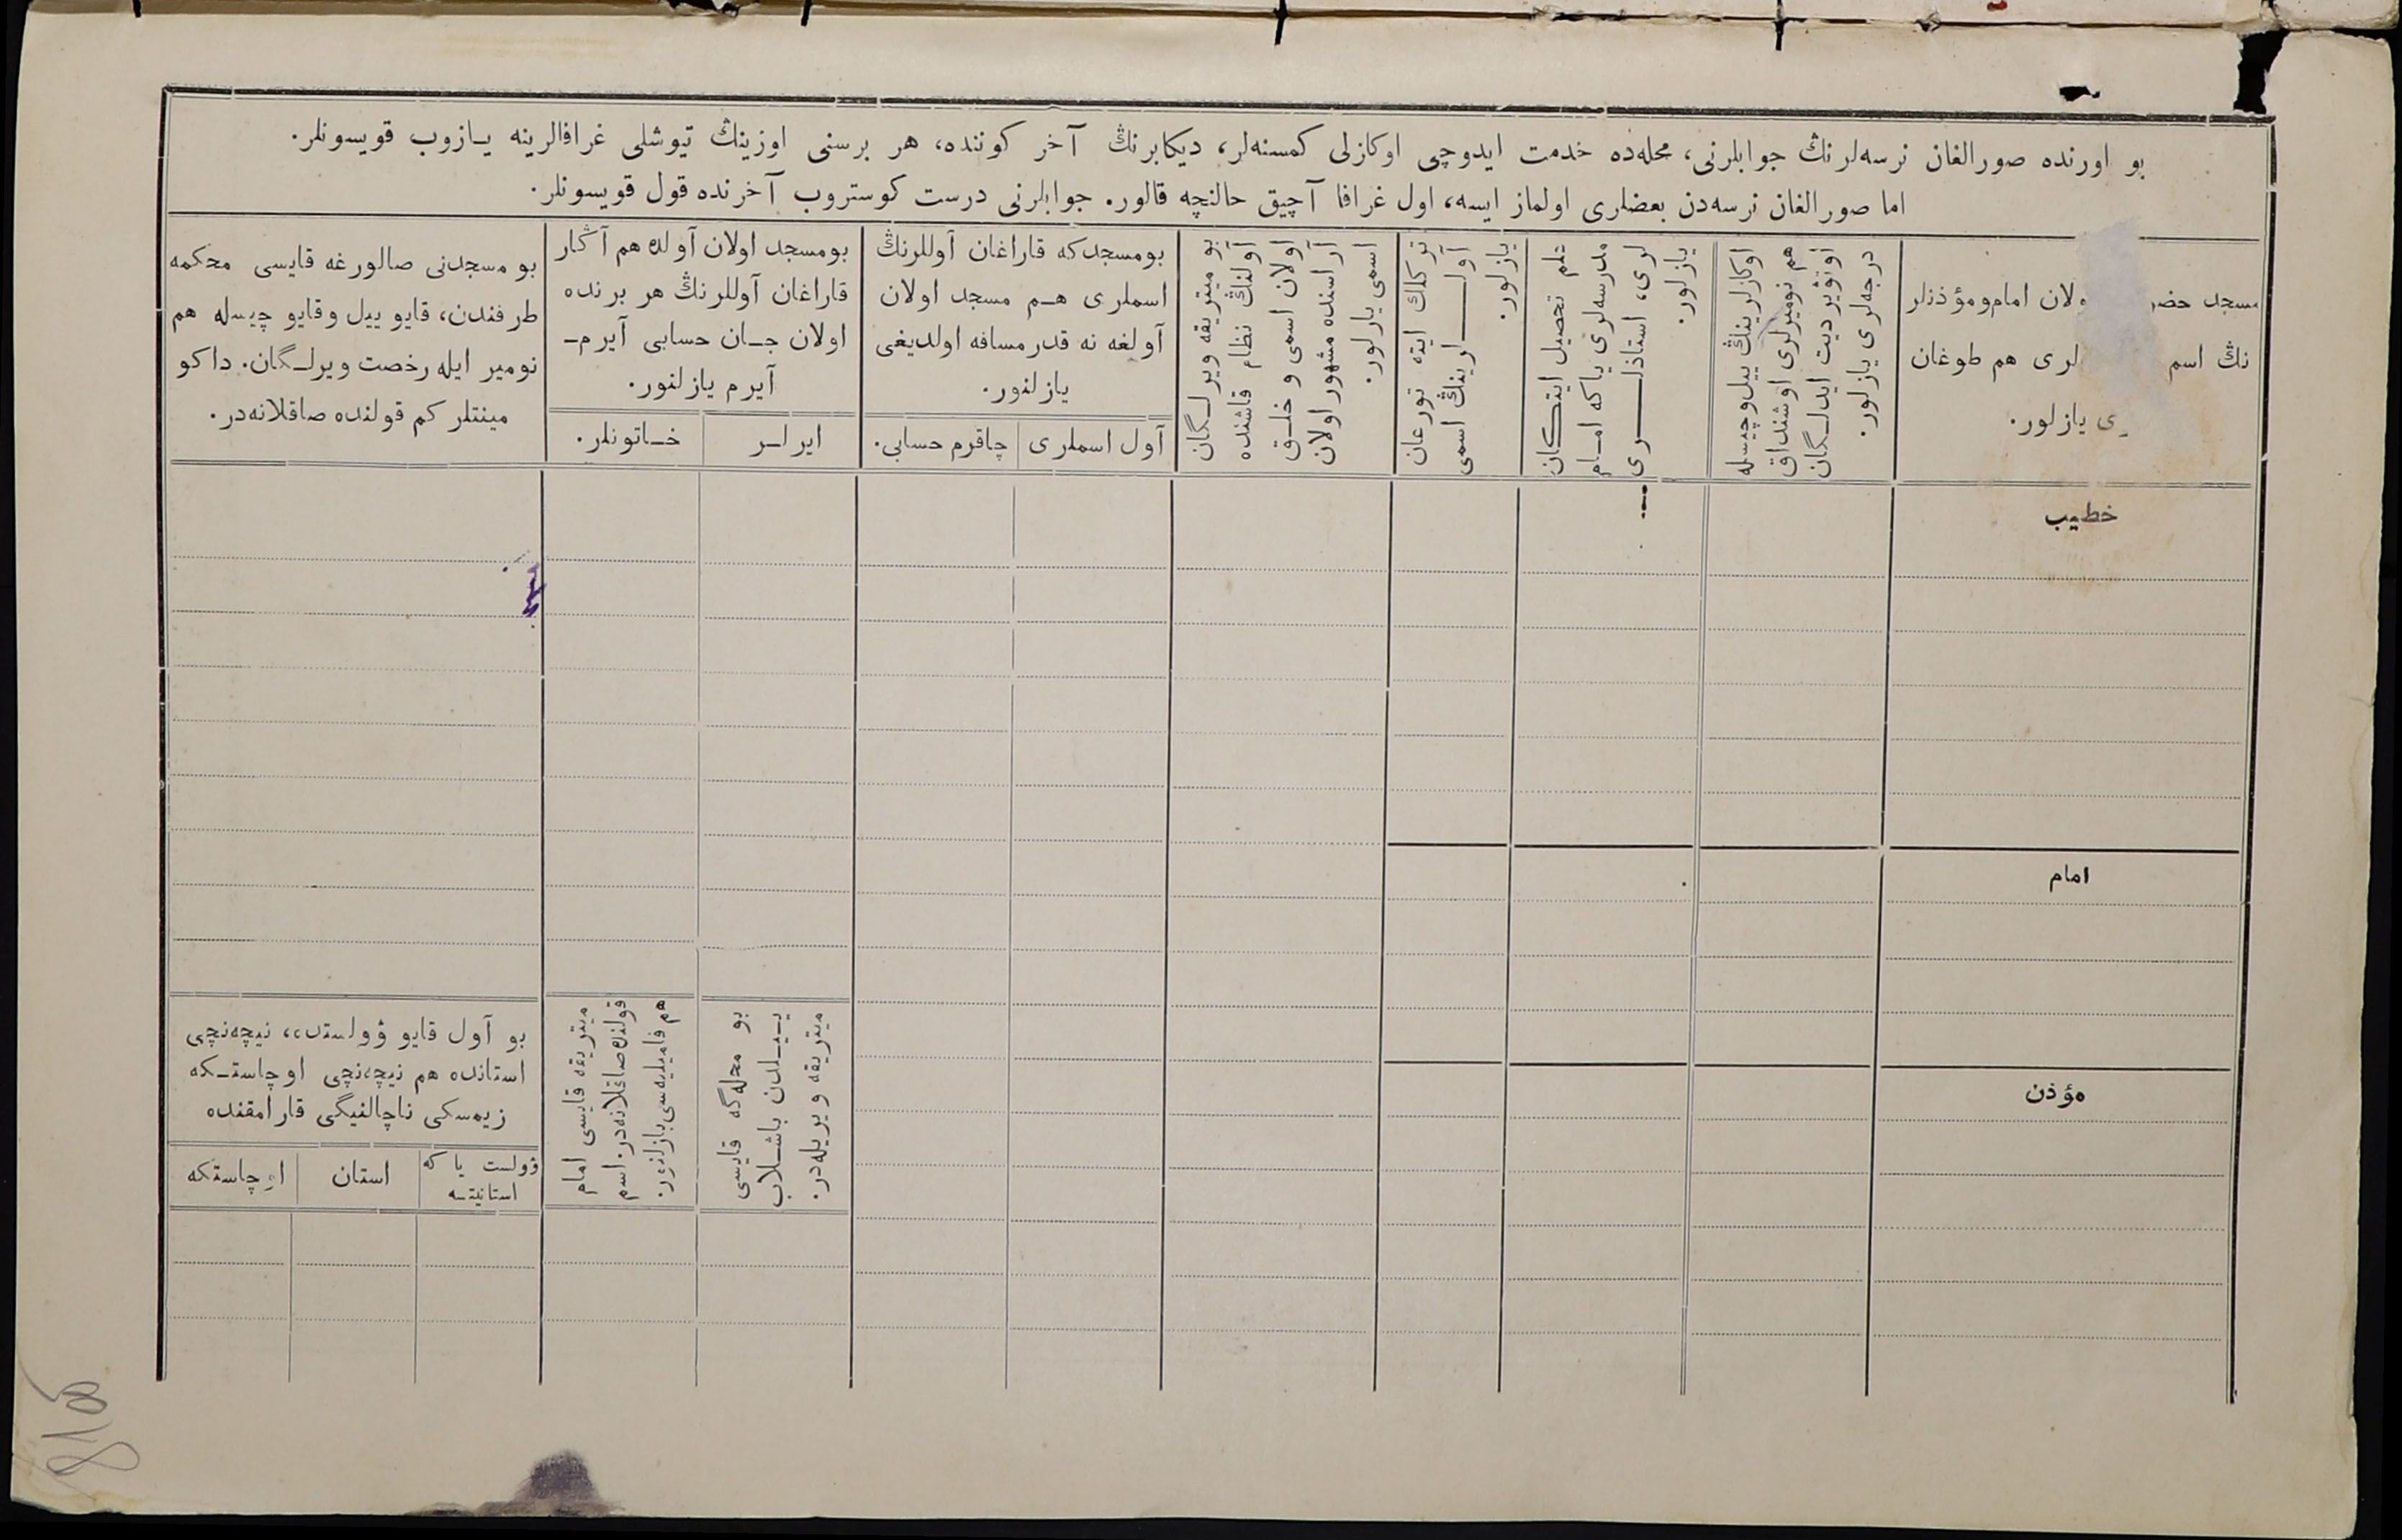 بو اورنده صورالغان نرسه‌لرنڭ جوابلرنی، محله‌ده خدمت ایدوچی اوکازلی کمسنه‌لر، دیکابرنڭ آخر کوننده، هر برسنی اوزینڭ تیوشلی غرافالرینه یــازوب قویسونلر.
اما صورالغان نرسه‌دن بعضلری اولماز ایسه، اول غرافا آچیق حالنچه قالور. جوابلرنی درست کوستروب آخرنده قول قویسونلر.
مسجد حضر ولان امام‌ومؤذنلر
نڭ اسم لری هم طوغان
ی یازلور.
اوکازلرینڭ ییل‌وچیسله
هم نومیرلری اوشنداق
اوتۋیردیت ایدلــگان
درجه‌لری یازلور.
علم تحصیل ایتـکان
مدرسه‌لری یاکه امــام
لری، استاذلــــری
یازلور.
ترکلك ایته تورغان
آولــــلرینڭ اسمی
یازلور.
بو میتریقه ویرلــگان
آولنڭ نظام قاشنده
اولان اسمی و خلــق
آراسنده مشهور اولان
اسمی یازلور.
بومسجدکه قاراغان آوللرنڭ
اسملری هــم مسجد اولان
آولغه نه قدر مسافه اولدیغی
یازلنور.
آول اسملری
چاقرم حسابی.
بومسجد اولان آولده هم آڭار
قاراغان آوللرنڭ هر برنده
اولان جــان حسابی آیرم‌ــ
آیرم یازلنور.
ایرلــر
خــاتونلر.
بو مسجدنی صالورغه قایسی محکمه
طرفندن، قایو ییل وقایو چیسله هم
نومیر ایله رخصت ویرلــگان. داکو
مینتلر کم قولنده صاقلانه‌در.
خطیب
امام
مؤذن
بو محله‌گه قایسی
ییــلدن باشــلاب
میتریقه ویریله‌در.
میتریقه قایسی امام
قولنده‌صاقلانه‌در. اسم
هم فامیلیه‌سی‌یازلنور.
بو آول قایو ۋولستده، نیچه‌نچی
استانده هم نیچه‌نچی اوچاستــکه
زیمسکی ناچالنیگی قارامقنده
ۋولست یا که
استانیتــه
استان
اوچاستکه